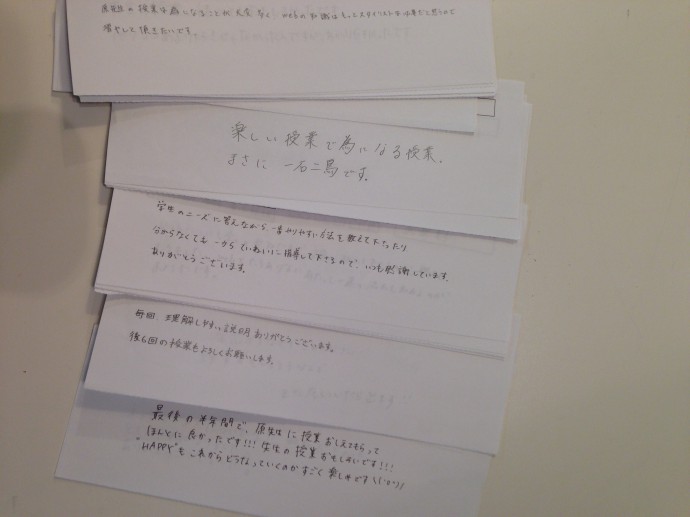 原先生の授業は為になることが大変多く webの知識はもっとスタイリストにも必要だと思うので
増やして頂きたいです。
楽しい授業で為になる授業。
まさに 一石二鳥です。
学生のニーズに答えながら 一番やりやすい方法を教えて下さったり
分からなくても 一から ていねいに指導して下さるので、いつも感謝しています。
ありがとうございます。
毎回、理解しやすい説明ありがとうございます。
後6回の授業もよろしくお願いします。
最後の半年間で、原先生に授業おしえてもらって
ほんとに良かったです!!! 先生の授業おもしろいです!!!
"HAPPY"も これからどうなっていくのかすごく楽しみです